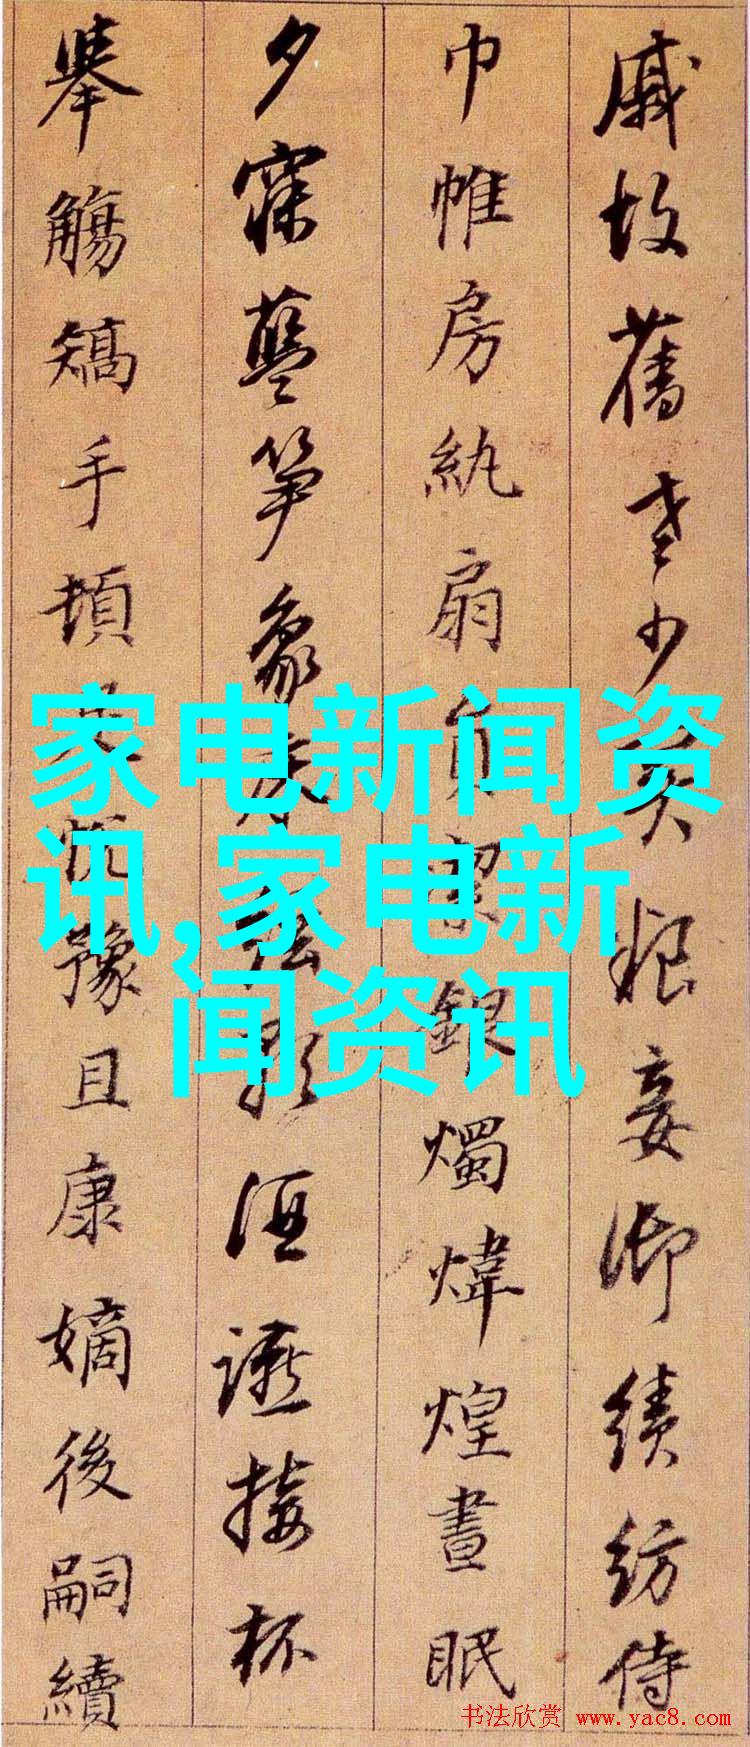 戚故舊老少異粮妾御績紡侍
巾帷房紈扇員絜銀燭煒煌晝眠
夕寐藍笋象床弦歌酒讌接杯
舉觴矯手頓足悦豫且康嫡後嗣續
家电新闻资
讯,家电新
闻资讯
书法欣赏 www.yac8.com